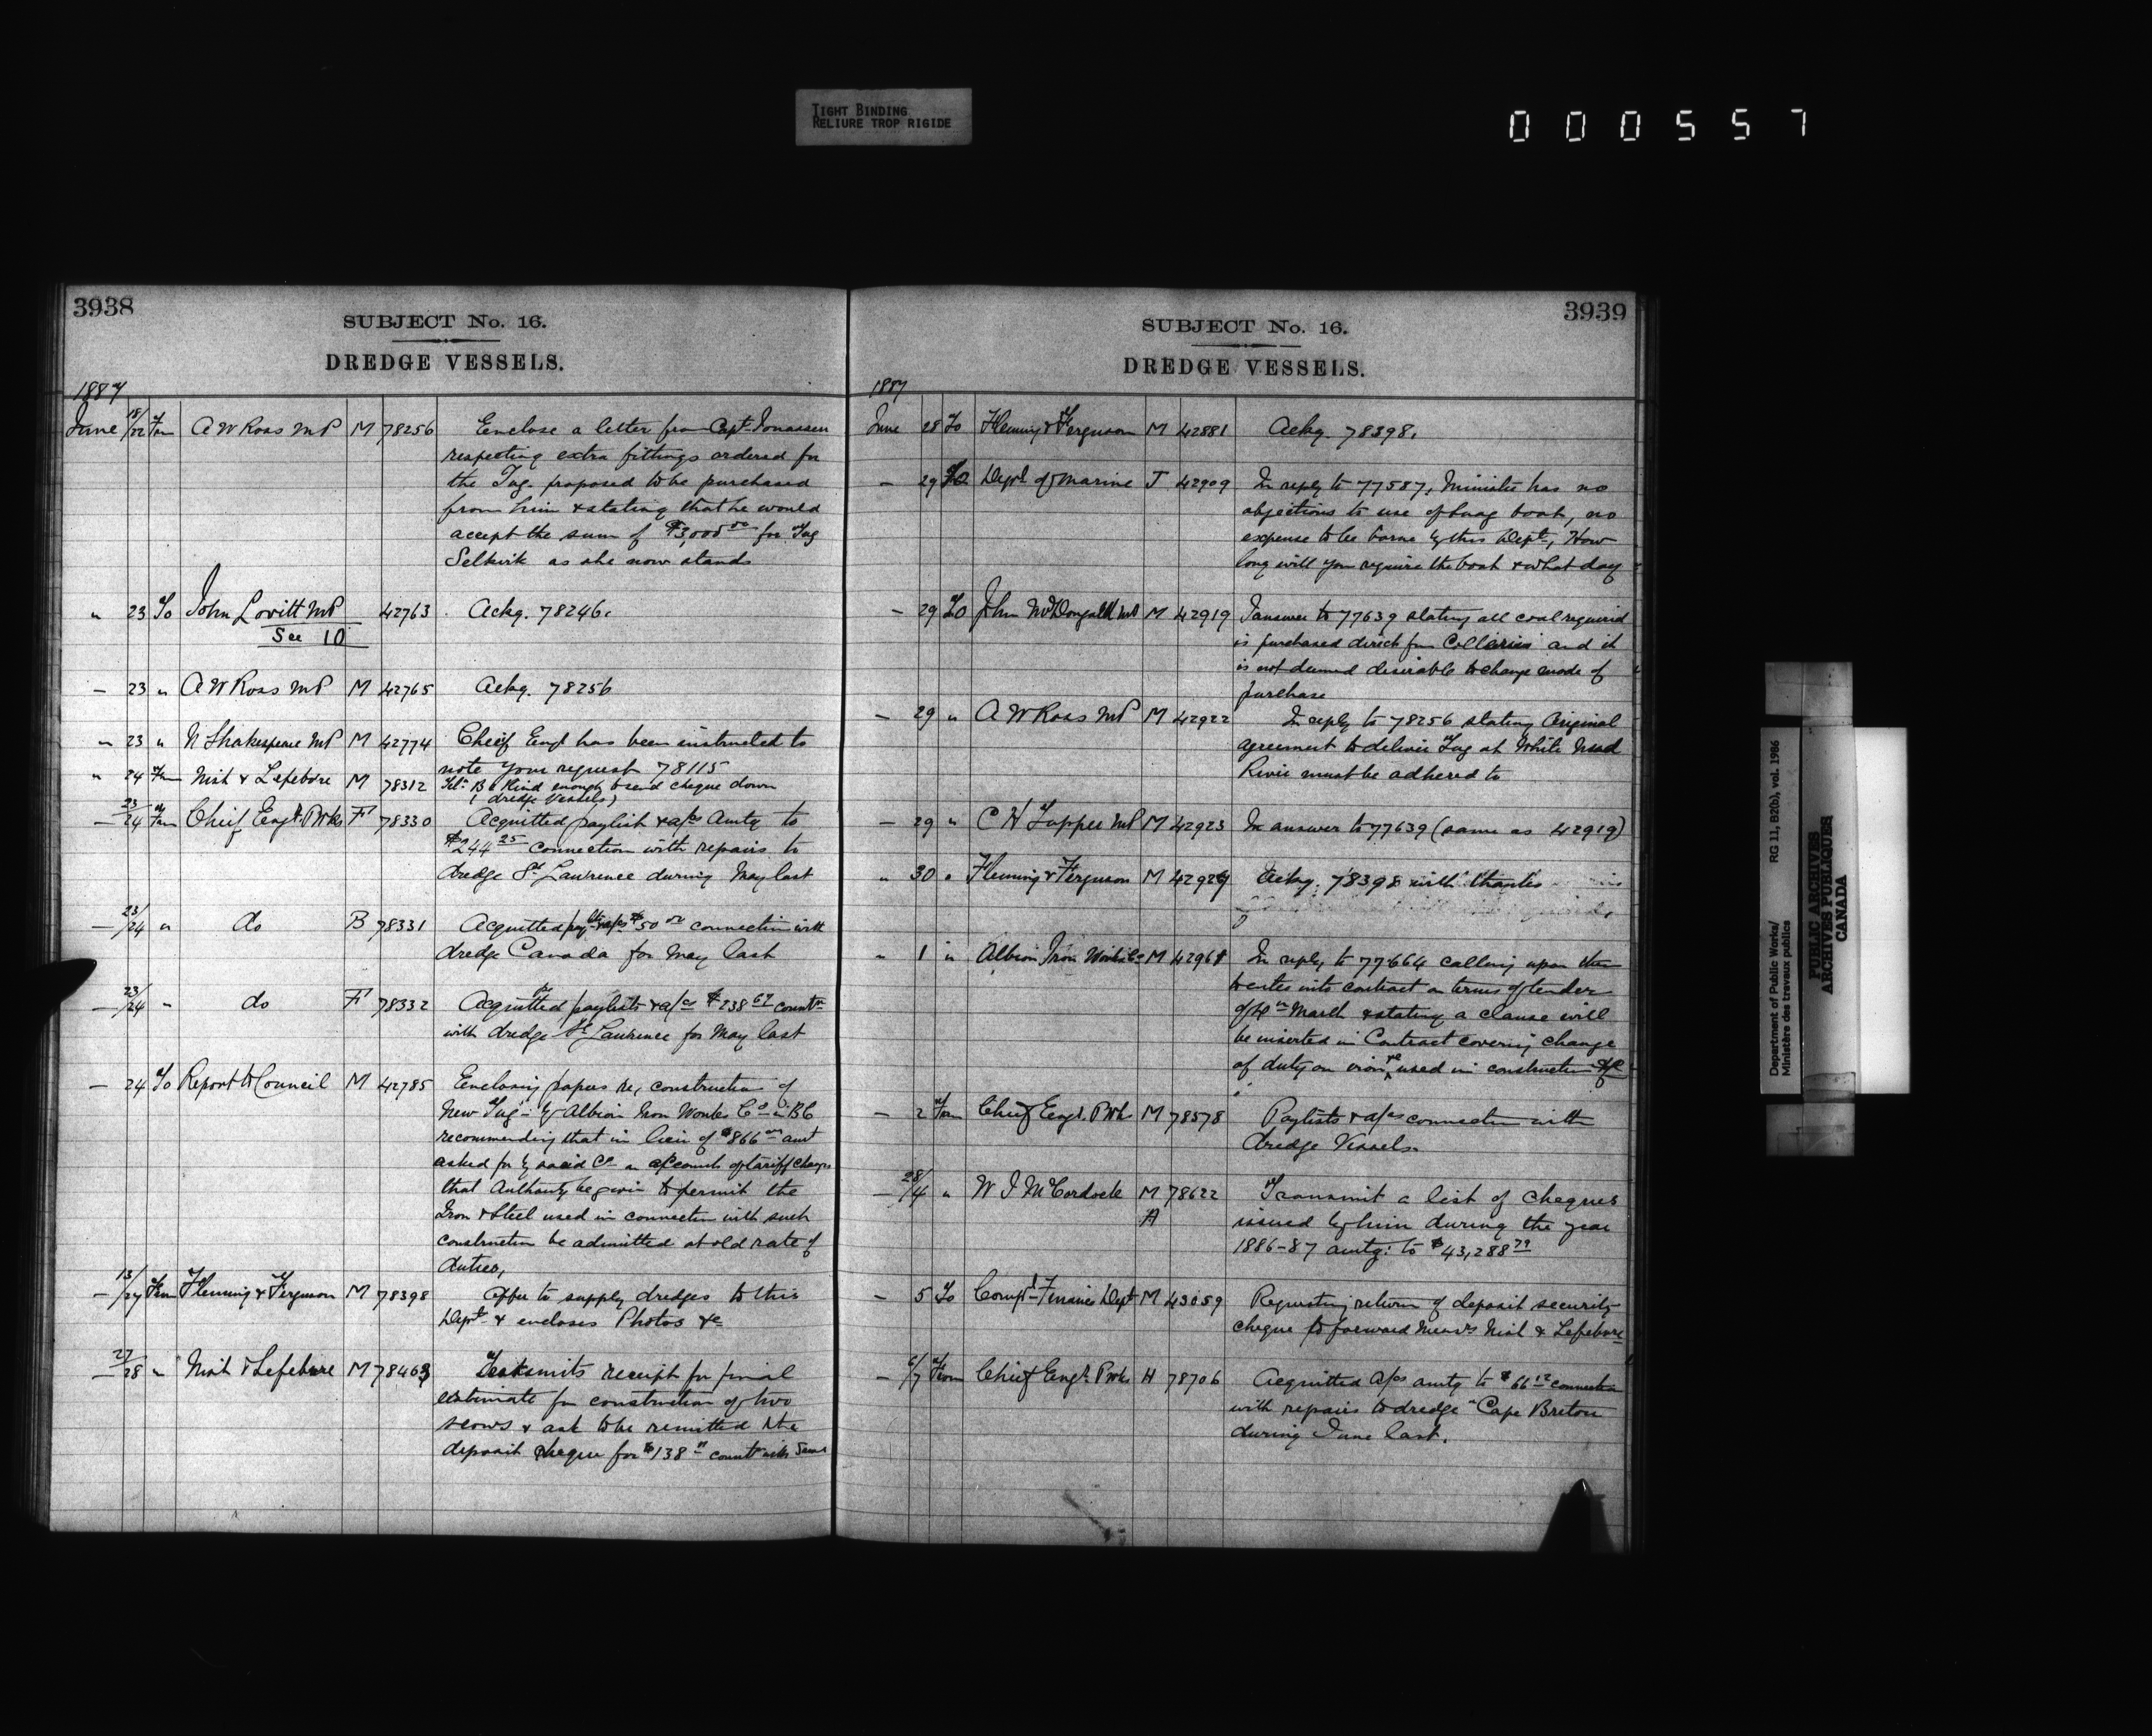 TIGHT BINDING
RELIURE TROP RIGIDE
000557
3938
SUBJECT No. 16.
DREDGE VESSELS.
1887
June 18/22 Fm A W Ross MP M 78256 Enclose a letter from Capt. Jonassen
respecting extra fittings ordered for
the Tug proposed to be purchased
from him & stating that he would
accept the sum of $3,000 00 for Tug
Selkirk as she now stands
" 23 To John Lovitt MP 42763 Ackg. 78246.
See 10
— 23 " A W Ross MP M 42765 Ackg. 78256
" 23 " N Shakespeare MP M 42774 Cheif Engr has been instructed to
note your request 78115
" 24 Fm Nish & Lefebvre M 78312 Tel: Be kind enough to send cheque down
(dredge Vessels)
— 23/24 Fm Cheif Engr. P Wks F 78330 Acquitted paylist & a/cs Amtg to
$244 25 connection with repairs to
dredge St Lawrence during May last
— 23/24 " do B 78331 Acquitted pay lts & a/cs $50 00 connection with
dredge Canada for May last
— 23/24 " do F 78332 Acquitted paylists & a/cs $238 67 connctn
with dredge St Lawrence for May last
— 24 To Report to Council M 42785 Enclosing papers re, construction of
New Tug by Albion Iron Works Co in BC
recommending that in lieu of $866 00 amt
asked for by said Co on account of tariff change
that Authority be given to permit the
Iron & Steel used in connection with such
construction be admitted at old rate of
duties,
— 13/27 Fm Fleming & Ferguson M 78398 Offer to supply dredges to this
Dept & encloses Photos &c
— 27/28 " Nish & Lefebvre M 78463 Transmits receipt for final
estimate for construction of two
scows & ask to be remitted the
deposit cheque for $138 connt with same
3939
SUBJECT No. 16.
DREDGE VESSELS.
1887
June 28 To Fleming & Ferguson M 42881 Ackg. 78398.
— 29 To Dept of Marine J 42909 In reply to 77587, Minister has no
objections to use of snag boat, no
expense to be borne by this Dept, How
long will you require the boat & what day
— 29 To John McDougall MP M 42919 I answer to 77639 stating all coal required
is purchased direct from Collieries and it
is not deemed desirable to change mode of
purchase
— 29 " A W Ross MP M 42922 In reply to 78256 stating Original
agreement to deliver Tug at White Mud
River must be adhered to
— 29 " C H Tupper MP M 42923 In answer to 77639 (same as 42919)
" 30 " Fleming & Ferguson M 42929 Ackg. 78398 with thanks
" 1 " Albion Iron Works Co M 42961 In reply to 77664 calling upon them
to enter into contract on terms of tender
of March & stating a clause will
be inserted in Contract covering change
of duty on iron &c used in construction of
— 2 Fm Cheif Engr. P Wks M 78578 Paylists & a/cs connection with
dredge Vessels.
— 28/4 " W J McCordock M 78622 Transmit a list of cheques
A issued by him during the year
1886-87 amtg: to $43,288 79
— 5 To Compt Finance Dept M 43059 Requesting return of deposit security
cheque to forward Messrs Nish & Lefebvre
— 6/7 From Cheif Engr P Wks H 78706 Acquitted a/cs amtg to $66 12 connection
with repairs to dredge "Cape Breton
during June last.
Department of Public Works/ RG 11, B2(b), vol. 1986
Ministère des travaux publics
PUBLIC ARCHIVES
ARCHIVES PUBLIQUES
CANADA